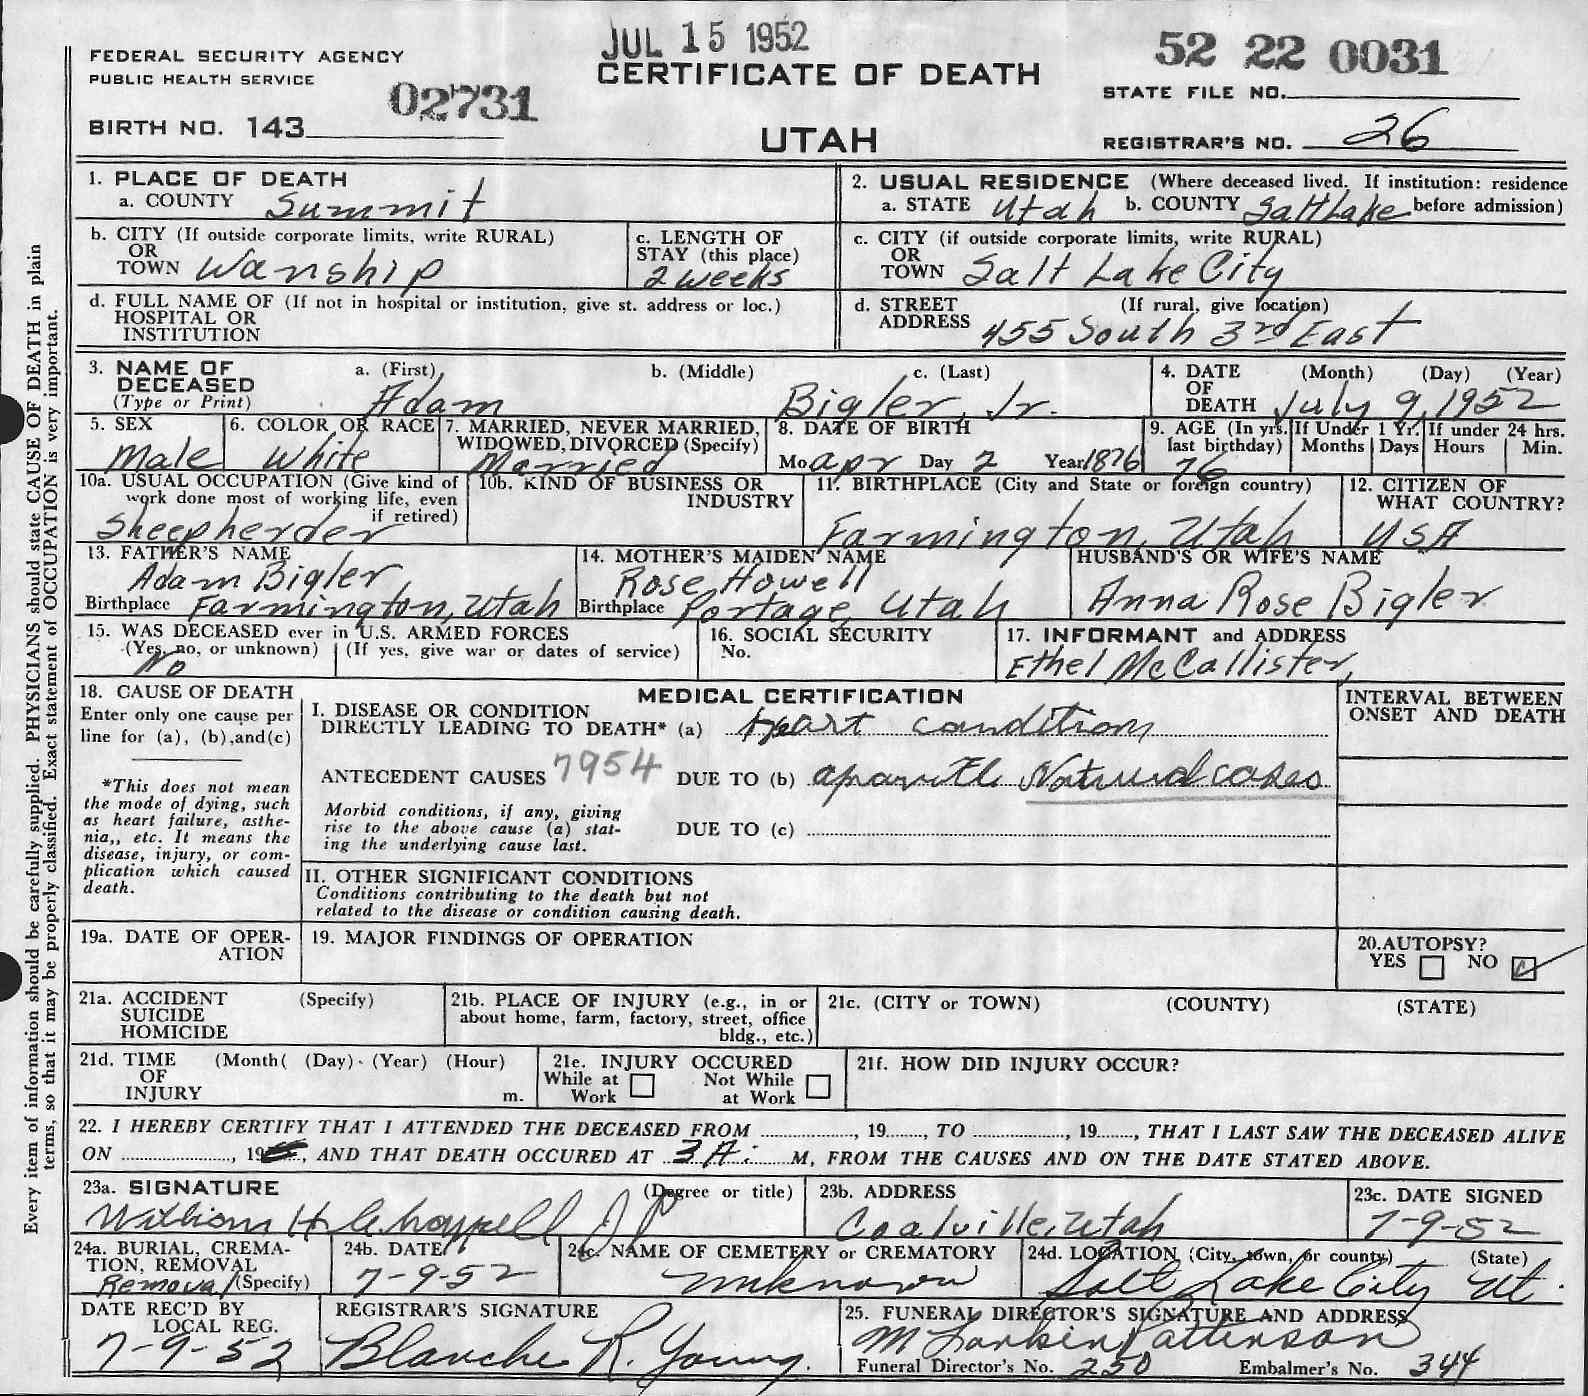 JUL 15 1952
52 22 0031
FEDERAL SECURITY AGENCY
PUBLIC HEALTH SERVICE
CERTIFICATE OF DEATH
STATE FILE NO.
02731
BIRTH NO. 143
UTAH
REGISTRAR'S NO. 26
Every item of information should be carefully supplied. PHYSICIANS should state CAUSE OF DEATH in plain
terms, so that it may be properly classified. Exact statement of OCCUPATION is very important.
1. PLACE OF DEATH
a. COUNTY Summit
2. USUAL RESIDENCE (Where deceased lived. If institution: residence
a. STATE Utah b. COUNTY Salt Lake before admission)
b. CITY (If outside corporate limits, write RURAL)
OR
TOWN Wanship
c. LENGTH OF
STAY (this place)
2 weeks
c. CITY (if outside corporate limits, write RURAL)
OR
TOWN Salt Lake City
d. FULL NAME OF (If not in hospital or institution, give st. address or loc.)
HOSPITAL OR
INSTITUTION
d. STREET (If rural, give location)
ADDRESS 455 South 3rd East
3. NAME OF DECEASED
(Type or Print)
a. (First) b. (Middle) c. (Last)
Adam Bigler, Jr.
4. DATE (Month) (Day) (Year)
OF
DEATH July 9, 1952
5. SEX
Male
6. COLOR OR RACE
White
7. MARRIED, NEVER MARRIED,
WIDOWED, DIVORCED (Specify)
Married
8. DATE OF BIRTH
Mo Apr Day 2 Year 1876
9. AGE (In yrs.
last birthday)
76
If Under 1 Yr.
Months Days
If under 24 hrs.
Hours Min.
10a. USUAL OCCUPATION (Give kind of
work done most of working life, even
if retired)
Sheepherder
10b. KIND OF BUSINESS OR
INDUSTRY
11. BIRTHPLACE (City and State or foreign country)
Farmington, Utah
12. CITIZEN OF
WHAT COUNTRY?
USA
13. FATHER'S NAME
Adam Bigler
Birthplace Farmington, Utah
14. MOTHER'S MAIDEN NAME
Rose Howell
Birthplace Portage, Utah
HUSBAND'S OR WIFE'S NAME
Anna Rose Bigler
15. WAS DECEASED ever in U.S. ARMED FORCES
(Yes, no, or unknown) (If yes, give war or dates of service)
No
16. SOCIAL SECURITY
No.
17. INFORMANT and ADDRESS
Ethel McCallister,
18. CAUSE OF DEATH
Enter only one cause per
line for (a), (b), and (c)
*This does not mean
the mode of dying, such
as heart failure, asthe-
nia,, etc. It means the
disease, injury, or com-
plication which caused
death.
MEDICAL CERTIFICATION
I. DISEASE OR CONDITION
DIRECTLY LEADING TO DEATH* (a) Heart condition
ANTECEDENT CAUSES 7954 DUE TO (b) Natural
Morbid conditions, if any, giving
rise to the above cause (a) stat-
ing the underlying cause last.
DUE TO (c)
INTERVAL BETWEEN
ONSET AND DEATH
II. OTHER SIGNIFICANT CONDITIONS
Conditions contributing to the death but not
related to the disease or condition causing death.
19a. DATE OF OPER-
ATION
19. MAJOR FINDINGS OF OPERATION
20. AUTOPSY?
YES NO
21a. ACCIDENT (Specify)
SUICIDE
HOMICIDE
21b. PLACE OF INJURY (e.g., in or
about home, farm, factory, street, office
bldg., etc.)
21c. (CITY or TOWN) (COUNTY) (STATE)
21d. TIME (Month( (Day) (Year) (Hour)
OF
INJURY m.
21e. INJURY OCCURED
While at Work
Not While at Work
21f. HOW DID INJURY OCCUR?
22. I HEREBY CERTIFY THAT I ATTENDED THE DECEASED FROM , 19 , TO , 19 , THAT I LAST SAW THE DECEASED ALIVE
ON , 19 , AND THAT DEATH OCCURED AT 3 A. M, FROM THE CAUSES AND ON THE DATE STATED ABOVE.
23a. SIGNATURE (Degree or title)
William H. Chappell J P
23b. ADDRESS
Coalville, Utah
23c. DATE SIGNED
7-9-52
24a. BURIAL, CREMA-
TION, REMOVAL
Removal (Specify)
24b. DATE
7-9-52
24c. NAME OF CEMETERY or CREMATORY
unknown
24d. LOCATION (City, town, or county) (State)
Salt Lake City Ut.
DATE REC'D BY
LOCAL REG.
7-9-52
REGISTRAR'S SIGNATURE
Blanche R. Young.
25. FUNERAL DIRECTOR'S SIGNATURE AND ADDRESS
M Larkin Pattinson
Funeral Director's No. 250 Embalmer's No. 344